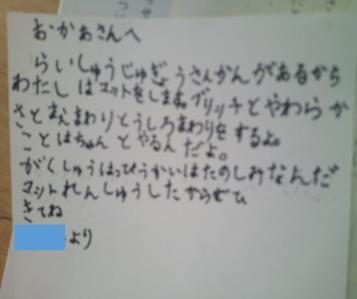 おかあさんへ
らいしゅうじゅぎょうさんかんがあるから
わたしはマットをします。ブリッチとやわらか
さとまえまわりとうしろまわりをするよ。
ことはちゃんとやるんだよ。
がくしゅうはっぴょうかいはたのしみなんだ
マットれんしゅうしたからぜひ
きてね
より